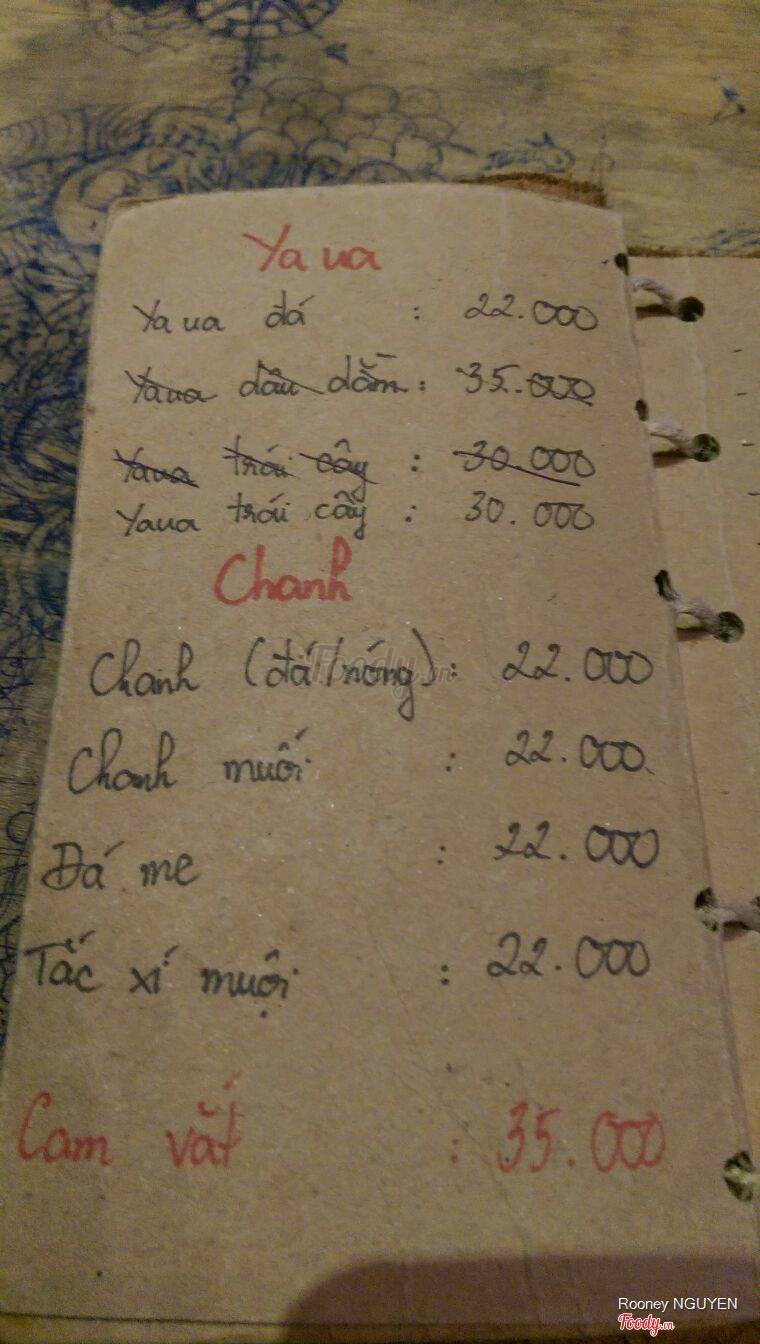 Ya ua
Ya ua đá : 22.000
Yaua dâu dằm : 35.000
Yaua trái cây : 30.000
Yaua trái cây : 30.000
Chanh
Chanh (đá/nóng) : 22.000
Chanh muối : 22.000
Đá me : 22.000
Tắc xí muội : 22.000
Cam vắt : 35.000
Foody.vn
Rooney NGUYEN
Foody.vn